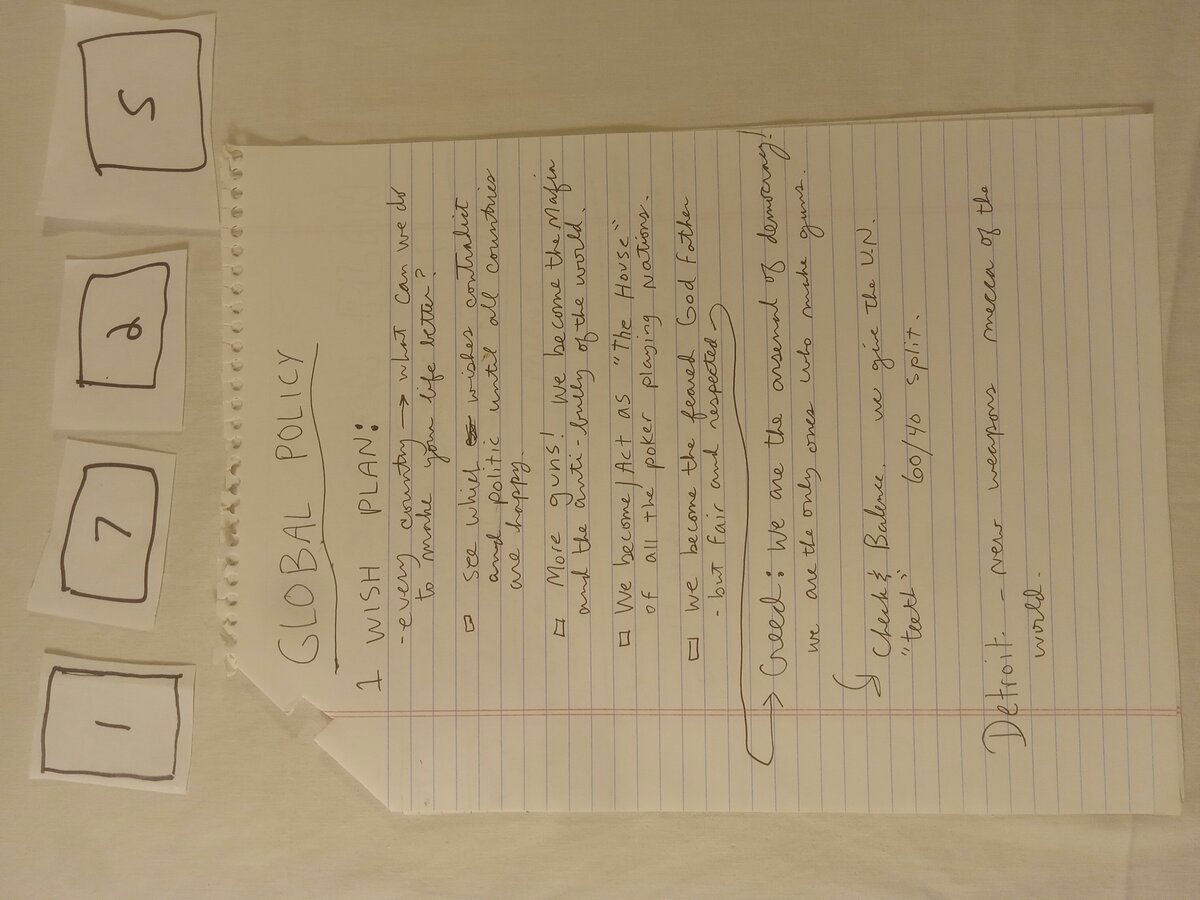 1 7 2 5
GLOBAL POLICY
1 WISH PLAN:
- every country → what can we do
to make your life better?
□ See which wishes contradict
and politic until all countries
are happy.
□ More guns! We become the Mafia
and the anti-bully of the world.
□ We become/Act as "The House"
of all the poker playing Nations.
□ We become the feared God Father
- but fair and respected
→ Creed: We are the arsenal of democracy!
we are the only ones who make guns.
Check & Balence. we give the U.N.
"teeth" 60/40 split.
Detroit. - New weapons mecca of the
world.